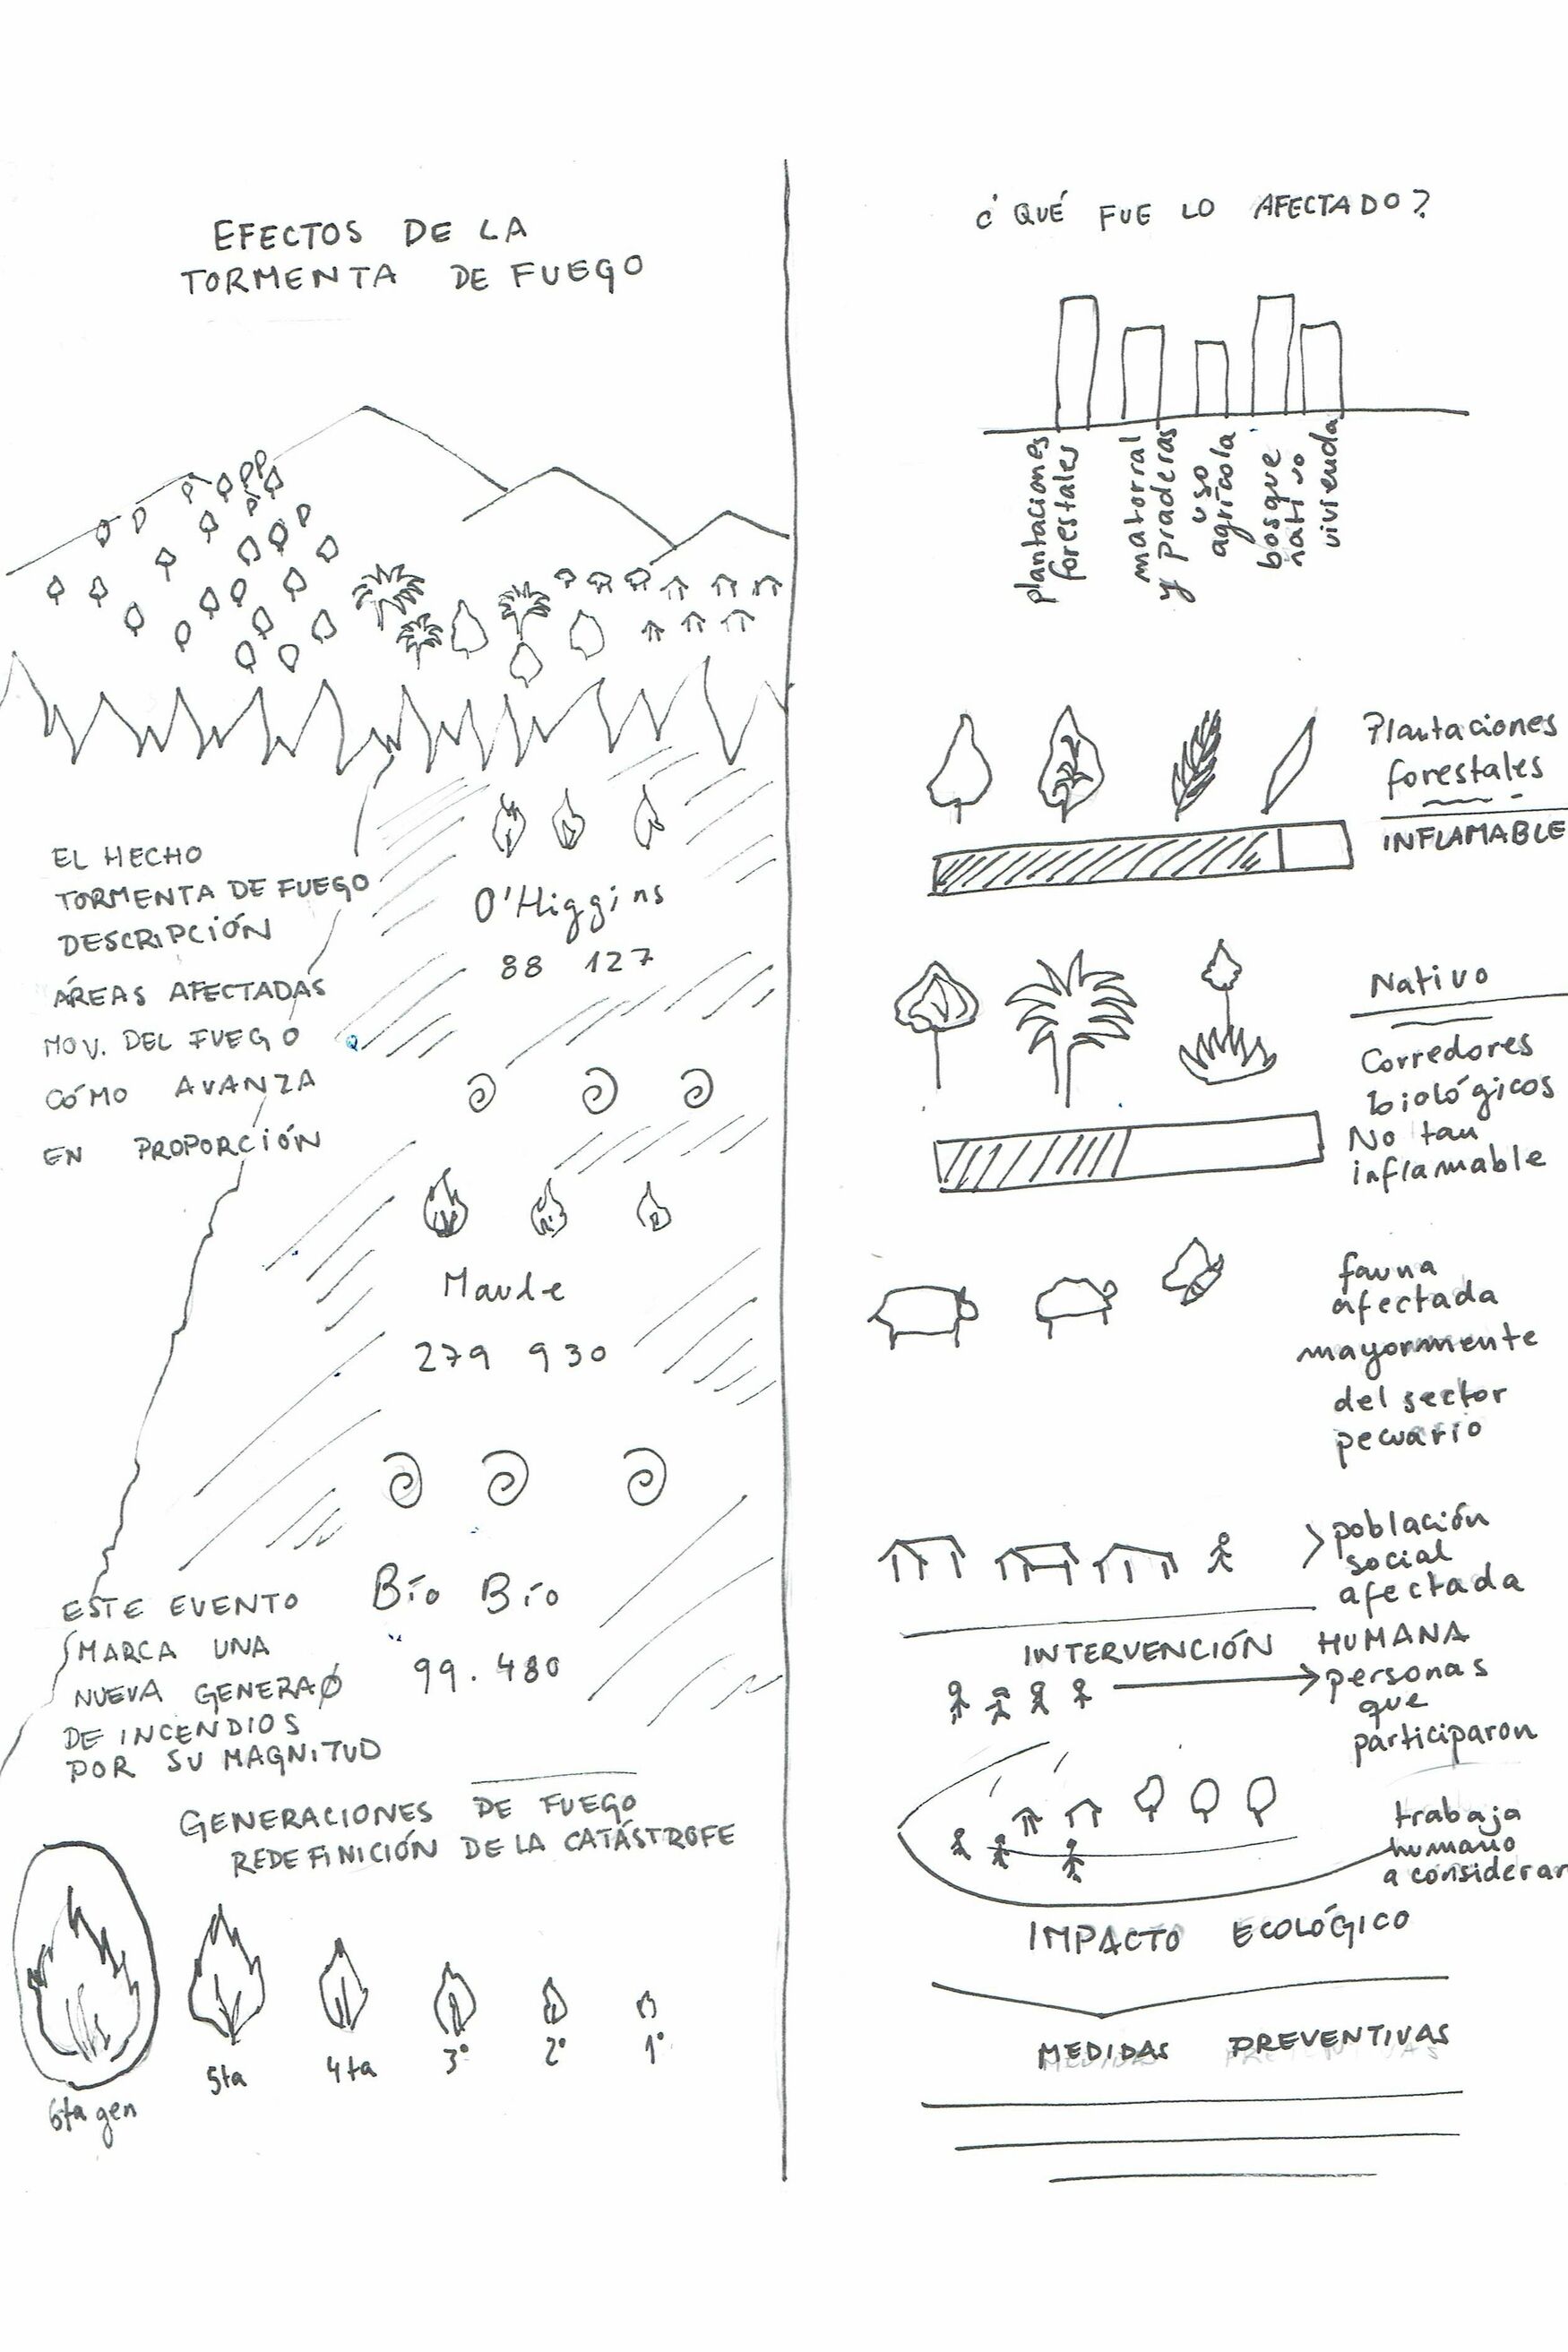 EFECTOS DE LA
TORMENTA DE FUEGO
EL HECHO
TORMENTA DE FUEGO
DESCRIPCIÓN
ÁREAS AFECTADAS
MOV. DEL FUEGO
CÓMO AVANZA
EN PROPORCIÓN
O'Higgins
88 127
Maule
279 930
Bío Bío
99.480
ESTE EVENTO
MARCA UNA
NUEVA GENERAØ
DE INCENDIOS
POR SU MAGNITUD
GENERACIONES DE FUEGO
REDEFINICIÓN DE LA CATÁSTROFE
6ta gen
5ta
4ta
3°
2°
1°
¿QUÉ FUE LO AFECTADO?
plantaciones
forestales
matorral
y praderas
uso
agrícola
bosque
nativo
vivienda
Plantaciones
forestales
INFLAMABLE
Nativo
Corredores
biológicos
No tan
inflamable
fauna
afectada
mayormente
del sector
pecuario
población
social
afectada
INTERVENCIÓN HUMANA
personas
que
participaron
trabaja
humano
a considerar
IMPACTO ECOLÓGICO
MEDIDAS PREVENTIVAS